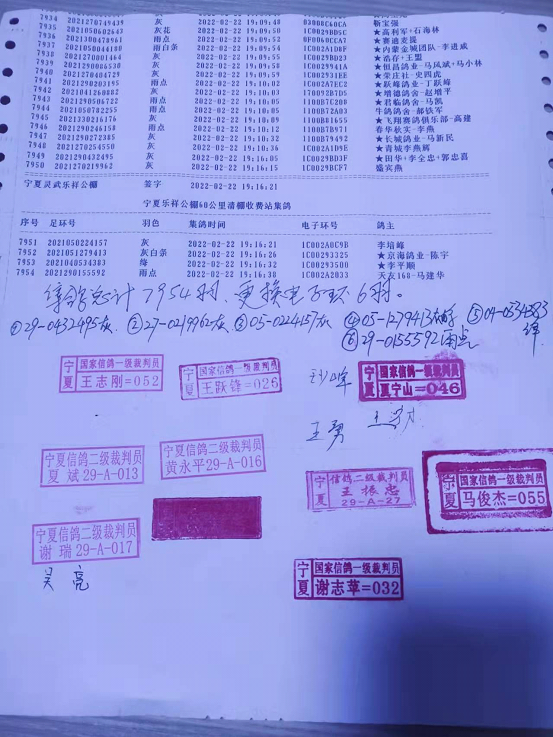 7934 2021270749439 灰 2022-02-22 19:09:48 03008C60CA 靳宝强
7935 2021050602643 灰花 2022-02-22 19:09:50 1C002BBD5C ★高利军+石海林
7936 2021300478961 雨点 2022-02-22 19:09:52 0F0060CCA7 ★赛迪麦提
7937 2021050044180 雨白条 2022-02-22 19:09:54
7938 2021270001464 灰 2022-02-22 19:09:55 ★浩存+王盟
7939 2021290086530 灰 2022-02-22 19:09:58 ★恒昌鸽业-马风斌+马小林
7940 2021270404729 灰 2022-02-22 19:09:59 1C002931EE ★荣庄社-史四虎
7941 2021290203195 雨点 2022-02-22 19:10:02 1C002A7EC2 ★跃峰鸽业-丁跃峰
7942 2021041260882 灰 2022-02-22 19:10:04 ★增雄鸽舍-赵增平
7943 2021290506722 雨点 2022-02-22 19:10:06 1100B7C20B ★君临鸽舍-马凯
7944 2021050782255 雨点 2022-02-22 19:10:07 1100B72A03 牛鸽鸽舍-郝铁军
7945 2021330216176 灰 2022-02-22 19:10:09 1100B81655 ★飞翔赛鸽俱乐部-高建
7946 2021290246158 雨点 2022-02-22 19:10:12 1100B7B971 春华秋实-李燕
7947 2021290272385 灰 2022-02-22 19:10:32 1100B79492 ★长城鸽业-马新民
7948 2021270254550 灰 2022-02-22 19:10:36 1C002A1D9E ★青城李燕辉
7949 2021290432495 灰 2022-02-22 19:16:05 1C0029BD3F ★田华+李全忠+郭忠喜
7950 2021270219962 灰 2022-02-22 19:16:15 1C0029BCF7 盛宾燕
宁夏灵武乐祥公棚 签字 2022-02-22 19:16:21
宁夏乐祥公棚60公里清棚收费站集鸽
序号 足环号 羽色 集鸽时间 电子环号 鸽主
7951 2021050224157 灰 2022-02-22 19:16:21 1C002A0C9B 李培峰
7952 2021051279413 灰白条 2022-02-22 19:16:26 1C00293325 ★京海鸽业-陈宇
7953 2021040534383 绛 2022-02-22 19:16:32 1C00293500 ★李平顺
7954 2021290155592 雨点 2022-02-22 19:16:38 1C002A2033 天友168-马建华
集鸽总计7954羽、更换电子环6羽。
①29-0432495灰 ②27-0219962灰 ③05-0224157灰 ④05-1279413灰白条 ⑤04-0534383绛
⑥29-0155592雨点
宁夏 国家信鸽一级裁判员 王志刚=052
宁夏 国家信鸽一级裁判员 王跃锋=026
宁夏 国家信鸽一级裁判员 夏宁山=046
王勇
宁夏信鸽二级裁判员
夏 斌29-A-013
宁夏信鸽二级裁判员
黄永平29-A-016
宁夏 信鸽二级裁判员 王振忠 29-A-27
宁夏 国家信鸽一级裁判员 马俊杰=055
宁夏信鸽二级裁判员
谢 瑞29-A-017
吴亮
宁夏 国家信鸽一级裁判员 谢志苹=032